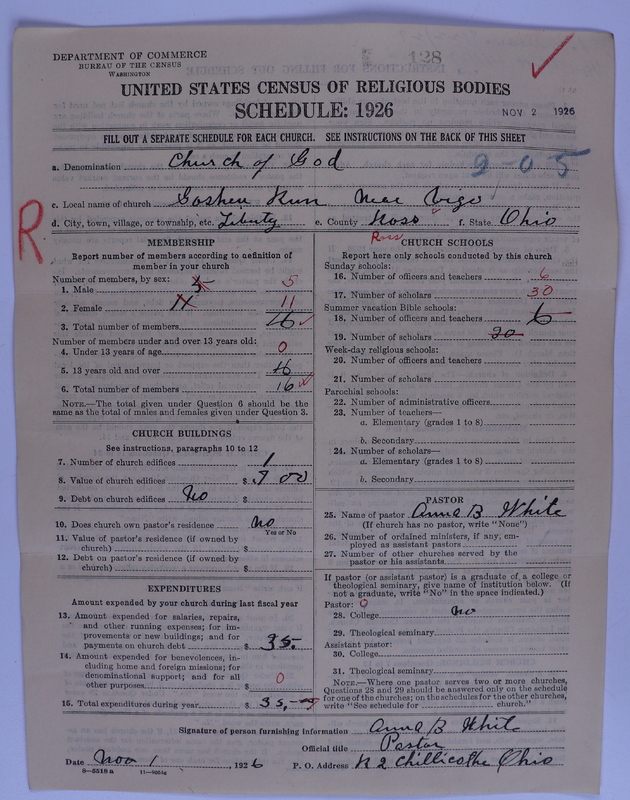 DEPARTMENT OF COMMERCE
BUREAU OF THE CENSUS
WASHINGTON
128
UNITED STATES CENSUS OF RELIGIOUS BODIES
SCHEDULE: 1926
NOV 2 1926
FILL OUT A SEPARATE SCHEDULE FOR EACH CHURCH. SEE INSTRUCTIONS ON THE BACK OF THIS SHEET
a. Denomination Church of God
9-05
c. Local name of church Goshen Run Near Vigo
d. City, town, village, or township, etc. Liberty e. County Ross f. State Ohio
R
Ross
MEMBERSHIP
Report number of members according to definition of
member in your church
Number of members, by sex:
1. Male 5 5
2. Female 11 11
3. Total number of members 16
Number of members under and over 13 years old:
4. Under 13 years of age 0
5. 13 years old and over 16
6. Total number of members 16
NOTE.—The total given under Question 6 should be
the same as the total of males and females given under Question 3.
CHURCH BUILDINGS
See instructions, paragraphs 10 to 12
7. Number of church edifices 1
8. Value of church edifices $ 900
9. Debt on church edifices No $
10. Does church own pastor's residence no
Yes or No
11. Value of pastor's residence (if owned by
church) $
12. Debt on pastor's residence (if owned by
church) $
EXPENDITURES
Amount expended by your church during last fiscal year
13. Amount expended for salaries, repairs,
and other running expenses; for im-
provements or new buildings; and for
payments on church debt $ 35.
14. Amount expended for benevolences, in-
cluding home and foreign missions; for
denominational support; and for all
other purposes $ 0
15. Total expenditures during year $ 35,—
CHURCH SCHOOLS
Report here only schools conducted by this church
Sunday schools:
16. Number of officers and teachers 6
17. Number of scholars 30
Summer vacation Bible schools:
18. Number of officers and teachers 6
19. Number of scholars 30
Week-day religious schools:
20. Number of officers and teachers
21. Number of scholars
Parochial schools:
22. Number of administrative officers
23. Number of teachers—
a. Elementary (grades 1 to 8)
b. Secondary
24. Number of scholars—
a. Elementary (grades 1 to 8)
b. Secondary
PASTOR
25. Name of pastor Anna B White
(If church has no pastor, write "None")
26. Number of ordained ministers, if any, em-
ployed as assistant pastors
27. Number of other churches served by the
pastor or his assistants
If pastor (or assistant pastor) is a graduate of a college or
theological seminary, give name of institution below. (If
not a graduate, write "No" in the space indicated.)
Pastor: 0
28. College no
29. Theological seminary
Assistant pastor:
30. College
31. Theological seminary
NOTE.—Where one pastor serves two or more churches,
Questions 28 and 29 should be answered only on the schedule
for one of the churches; on the schedules for the other churches,
write "See schedule for church."
Signature of person furnishing information Anna B White
Official title Pastor
Date Nov 1, 1926 P. O. Address R 2 Chillicothe Ohio
8—5518a 11—9054a